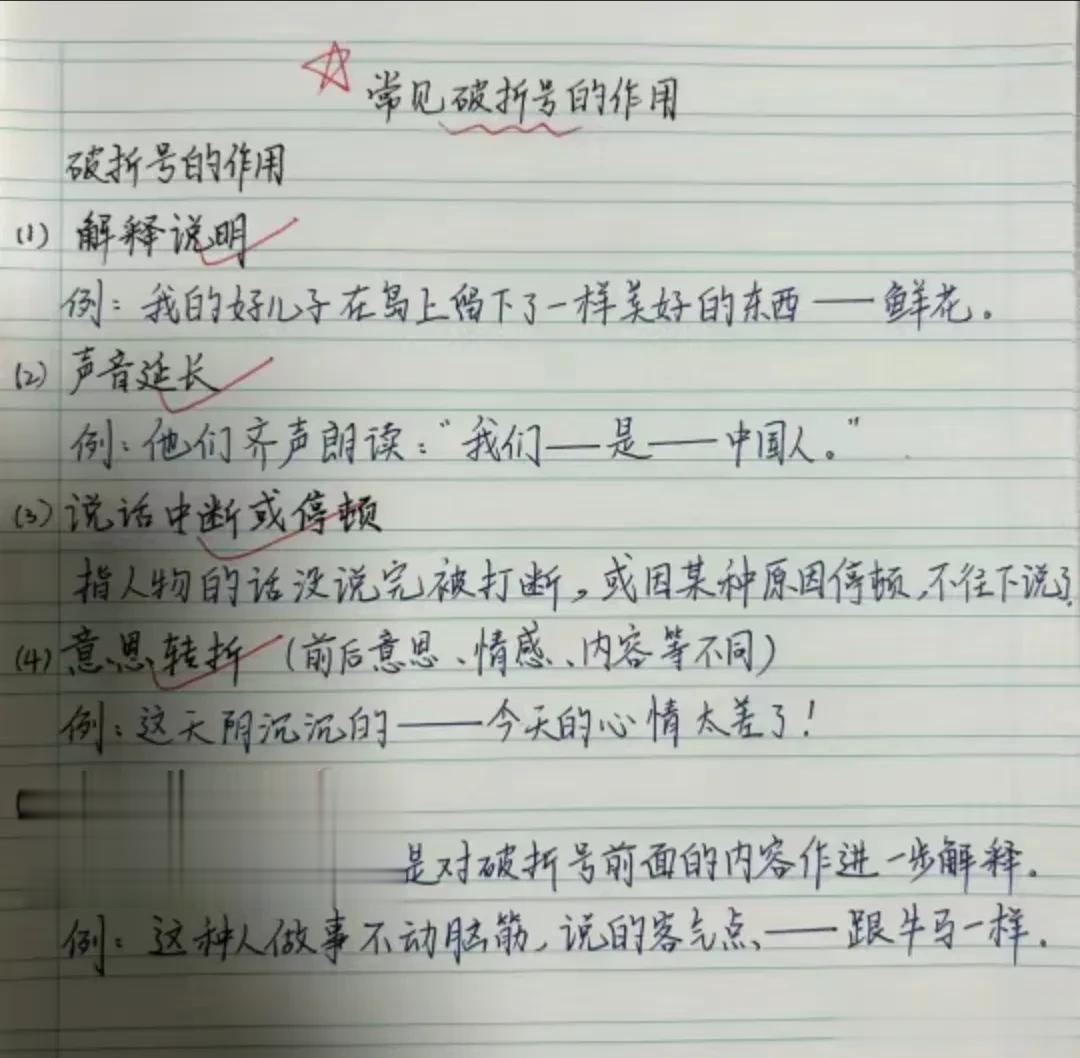 常见破折号的作用
破折号的作用
(1) 解释说明
例：我的好儿子在岛上留下了一样美好的东西——鲜花。
(2) 声音延长
例：他们齐声朗读：“我们——是——中国人。”
(3) 说话中断或停顿
指人物的话没说完被打断。或因某种原因停顿，不往下说了。
(4) 意思转折（前后意思、情感、内容等不同）
例：这天阴沉沉的——今天的心情太差了！
是对破折号前面的内容作进一步解释。
例：这种人做事不动脑筋，说的客气点、——跟牛马一样.